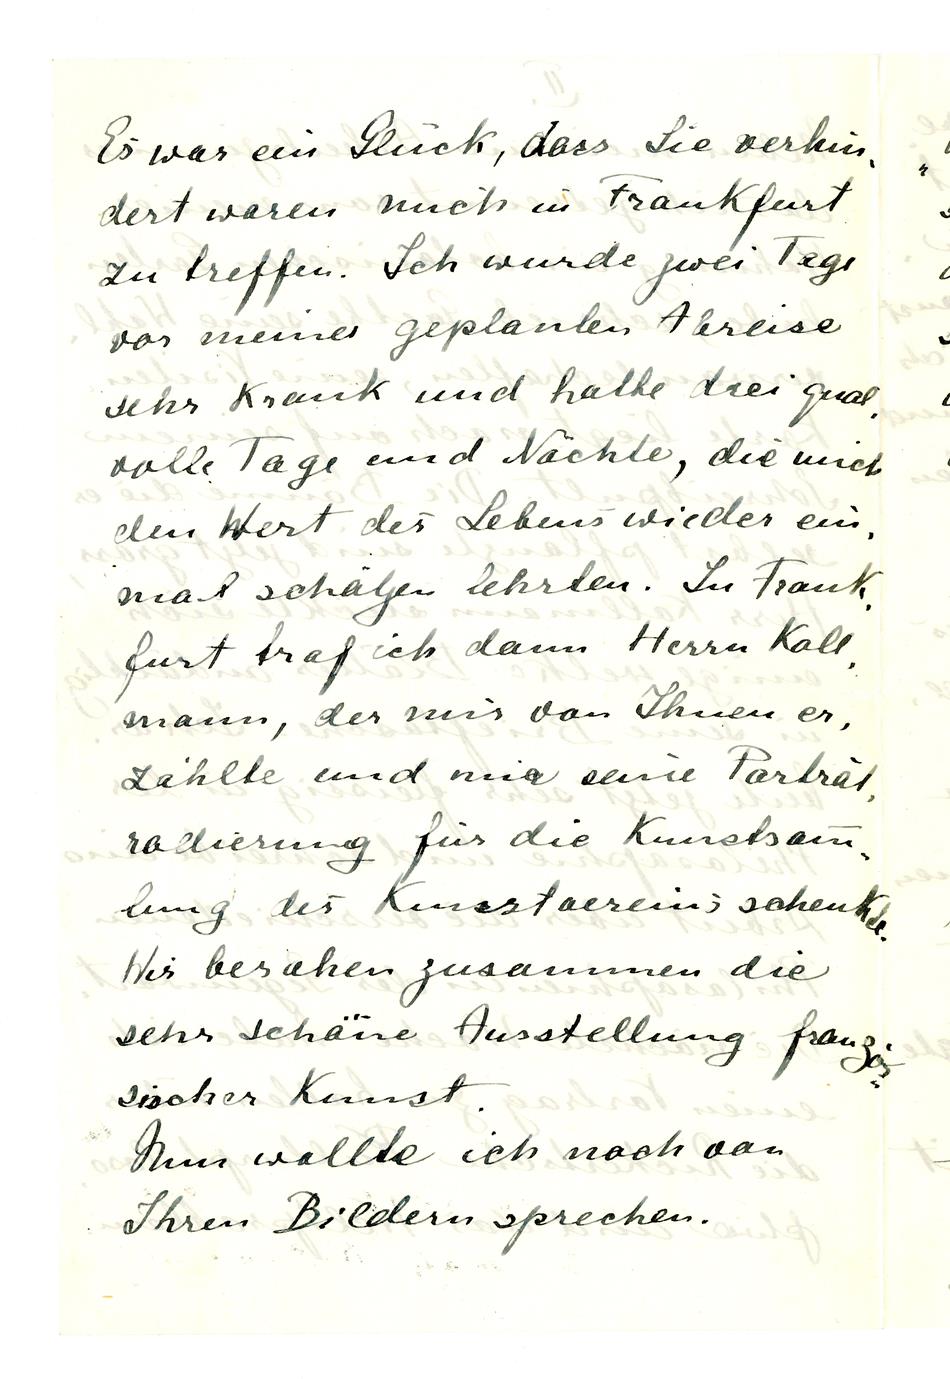 Es war ein Glück, dass Sie verhin-
dert waren mich in Frankfurt
zu treffen. Ich wurde zwei Tage
vor meiner geplanten Abreise
sehr krank und hatte drei qual-
volle Tage und Nächte, die mich
den Wert des Lebens wieder ein-
mal schätzen lehrten. In Frank-
furt traf ich dann Herrn Koll-
mann, der mir von Ihnen er-
zählte und mir seine Porträt-
radierung für die Kunstsam̅-
lung des Kunstvereins schenkte.
Wir besahen zusammen die
sehr schöne Ausstellung franzö-
sischer Kunst.
Nun wollte ich noch von
Ihren Bildern sprechen.